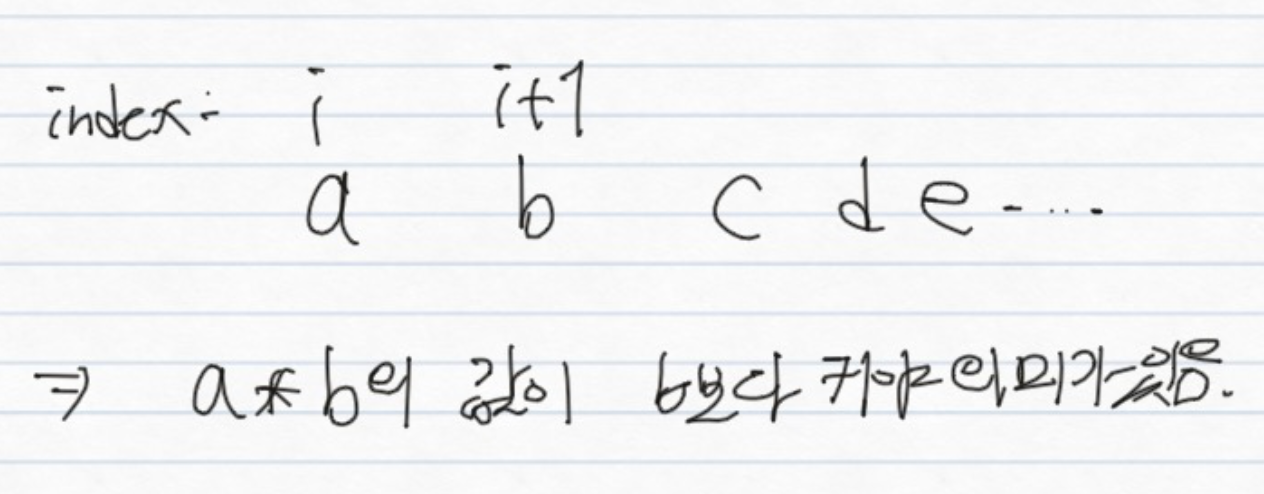 index: i i+1
a b c d e - ...
⇒ a * b의 값이 b보다 커야 의미가 있음.